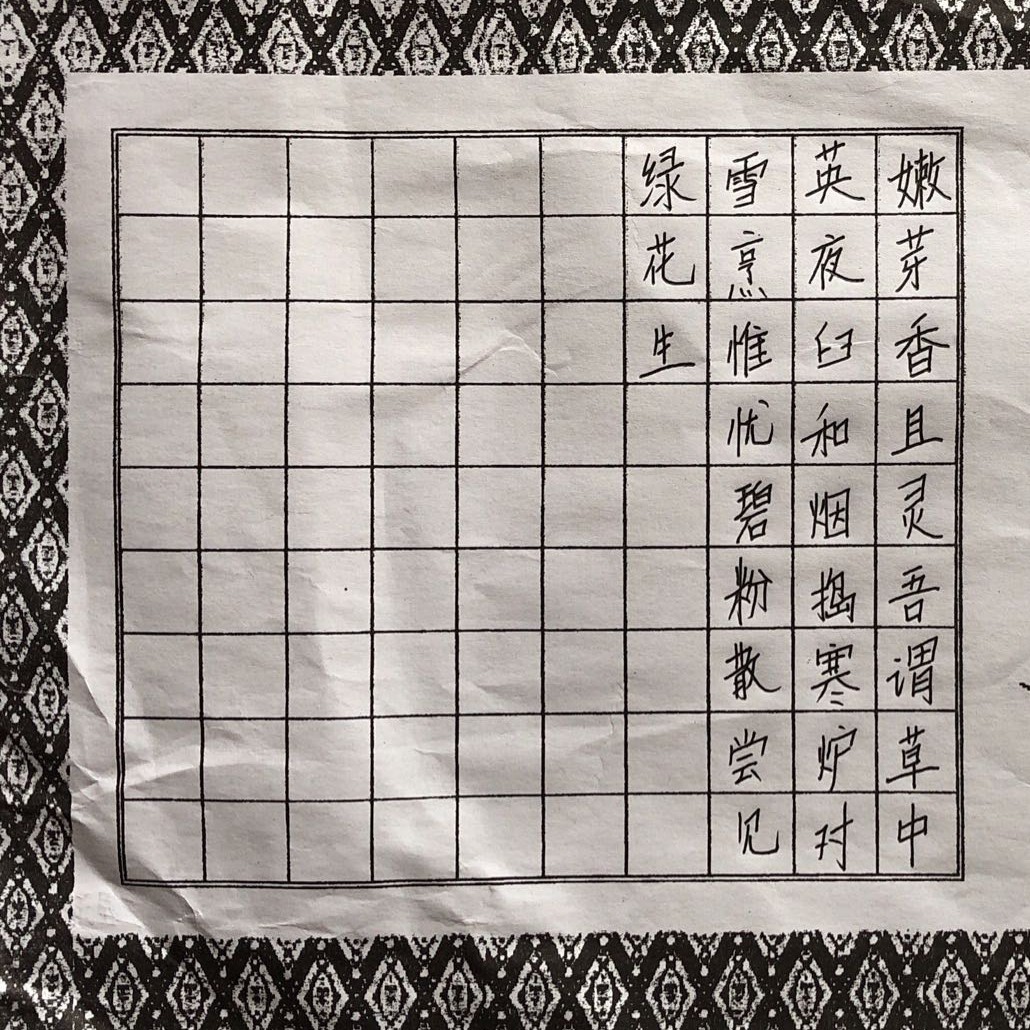 嫩芽香且灵吾谓草中
英夜臼和烟捣寒炉对
雪烹惟忧碧粉散尝见
绿花生